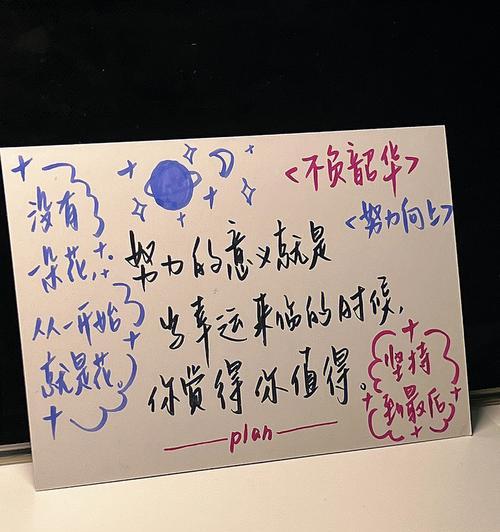 没有
一朵花，
从一开始
就是花。
<不负韶华>
<努力向上>
努力的意义就是
当幸运来临的时候，
你觉得你值得。
坚持
到最后
plan